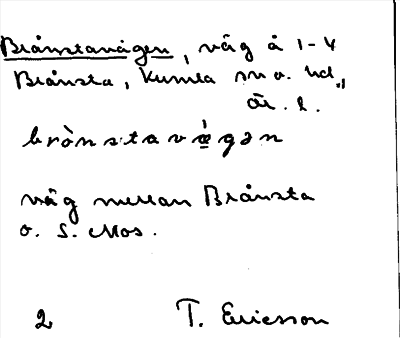 Brånstavägen, väg å 1-4
Brånsta, Kumla sn o. hd,
Ör. l.
brònstavǽgən
väg mellan Brånsta
o. S. Mos.
2 T. Ericsson